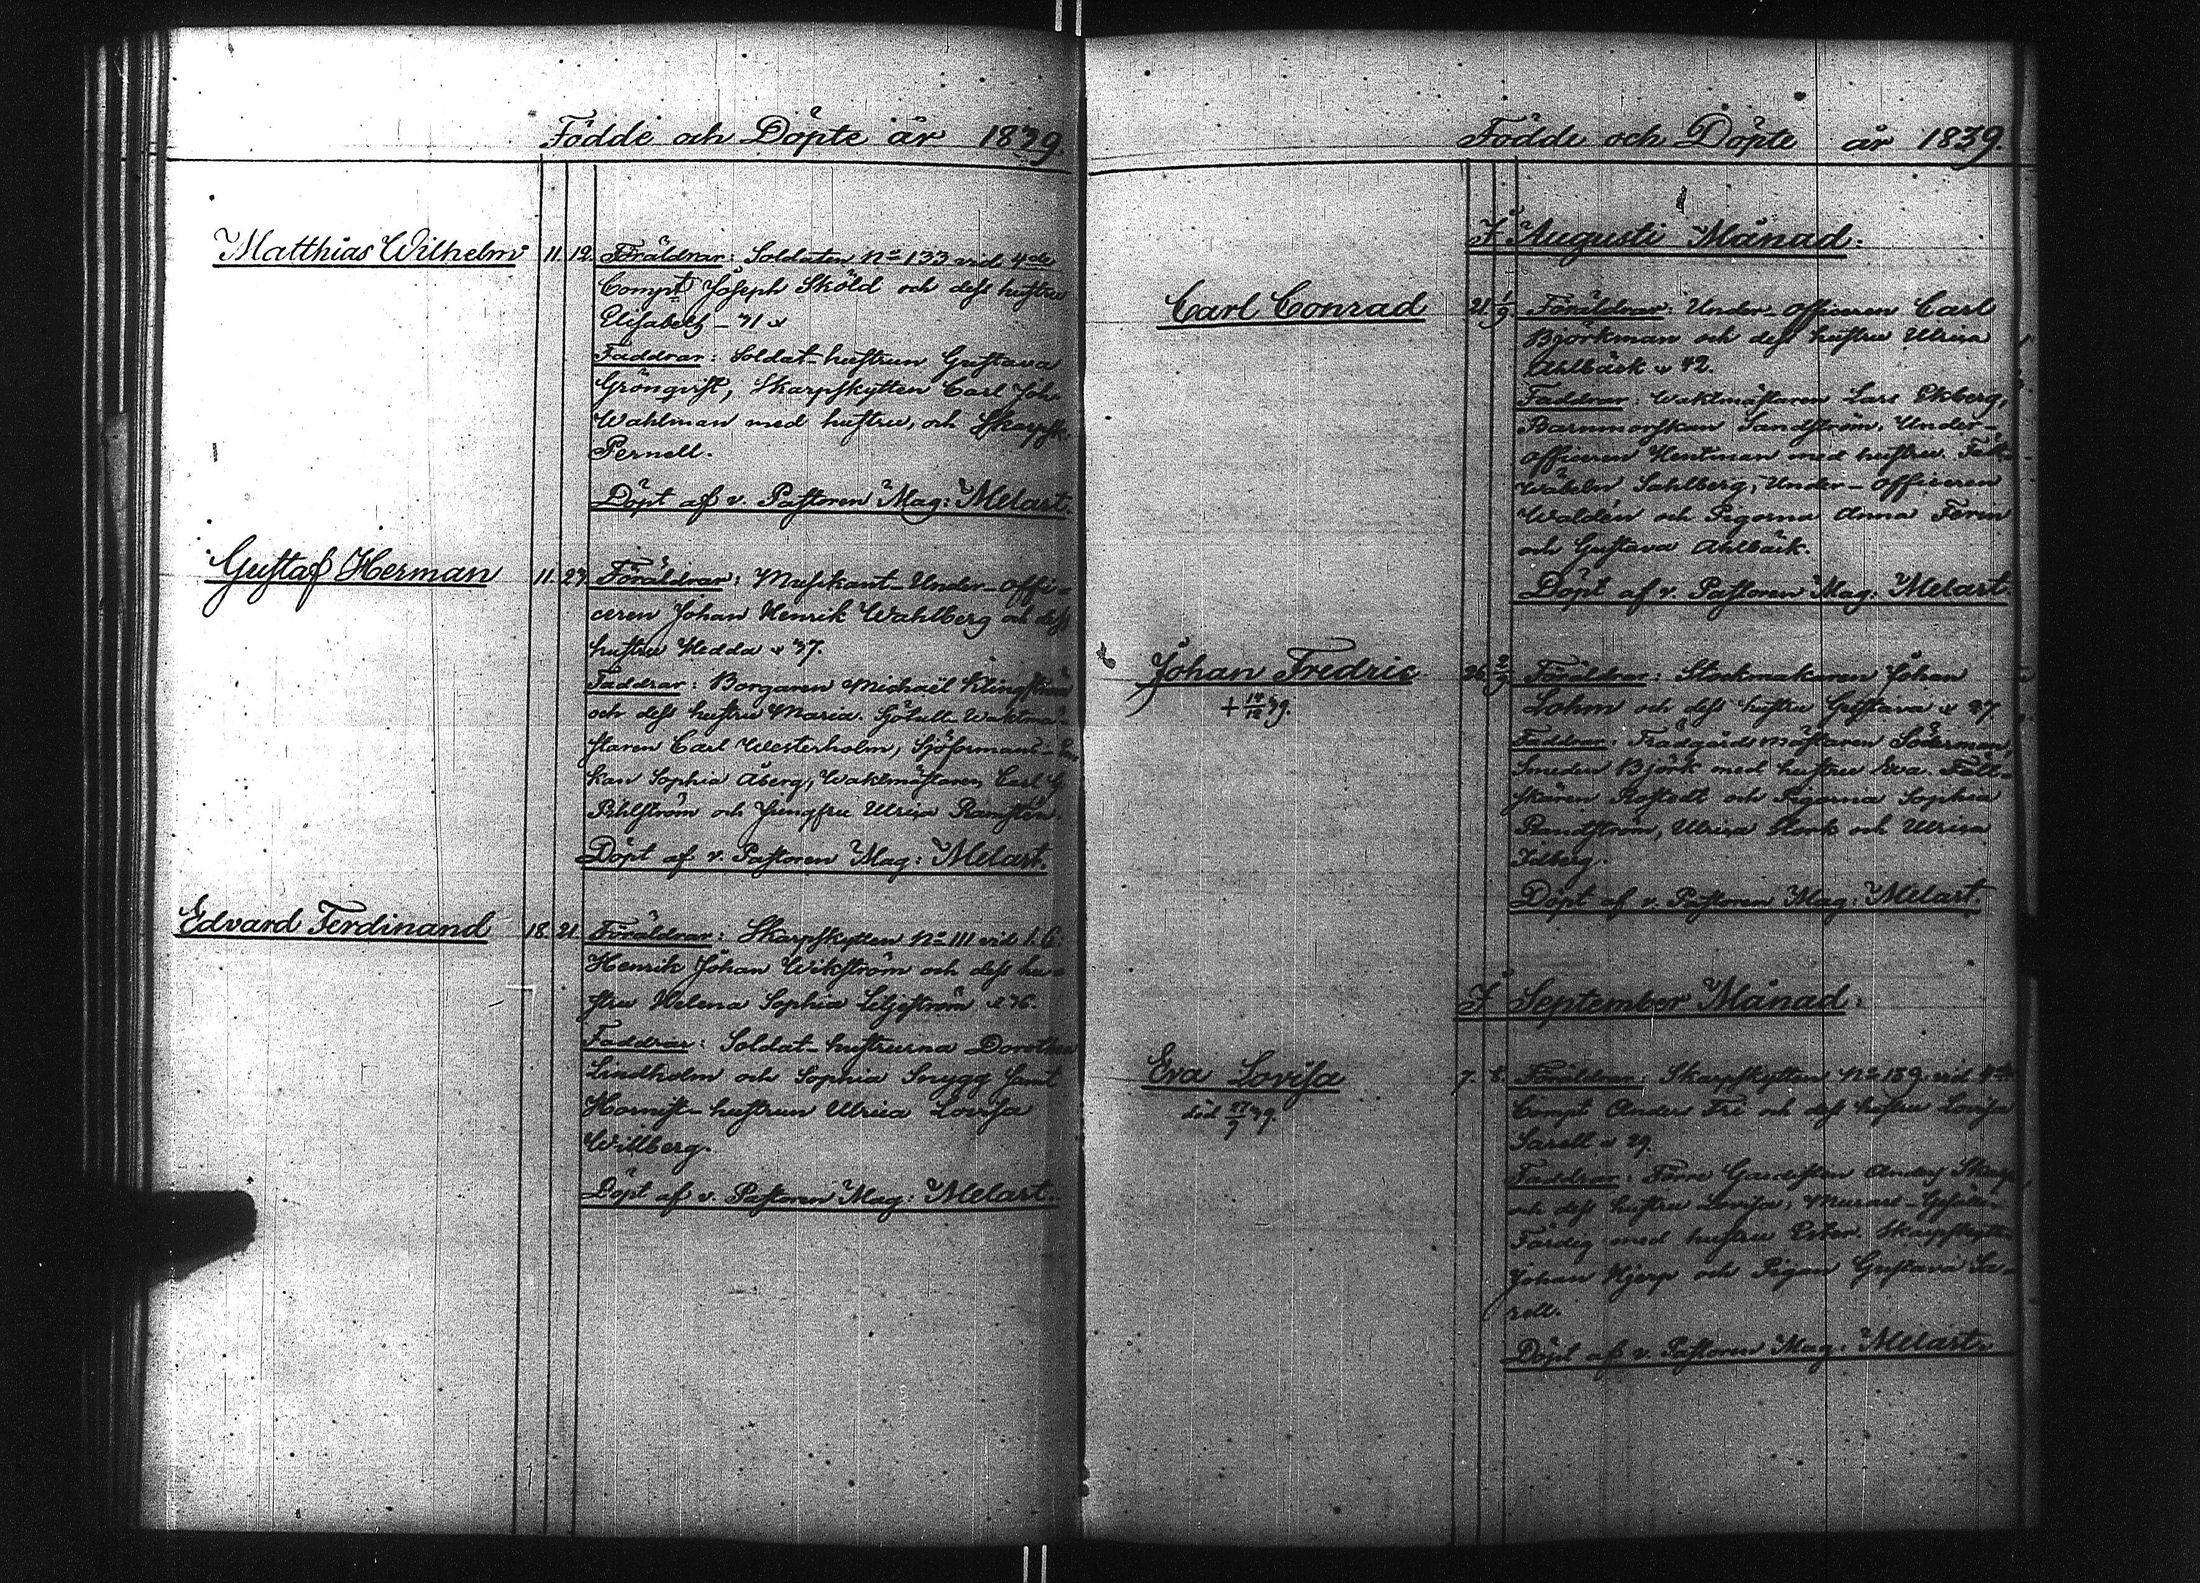 Födde och Döpte år 1839.
Matthias Wilhelm 11. 12. Föräldrar: Soldaten No 133 vid 4de
Compt Joseph Sköld och dess hustru
Elisabeth - 31
Faddrar: Soldat-hustrun Gustava
Grönqvist, Skarpskytten Carl Joh.
Wahlman med hustru, och Skarpsk.
Pernell.
Döpt af v. Pastoren Mag: Melart.
Gustaf Herman 11. 23. Föräldrar: Musikant-Under-offi-
ceren Johan Henrik Wahlberg och dess
hustru Hedda 37.
Faddrar: Borgaren Michaël
och dess hustru Maria. Sjötull-Waktmä-
staren Carl Westerholm, Sjöformans-En-
kan Sophia Åberg, Waktmästaren Carl G
Pihlström och Jungfru Ulrica Ramstén.
Döpt af v. Pastoren Mag: Melart.
Edvard Ferdinand 18. 21. Föräldrar: Skarpskytten No 111 vid 1. C.
Henrik Johan Wikström och dess hu-
stru Helena Sophia Liljeström 36.
Faddrar: Soldat-hustrurna Dorothea
Lindholm och Sophia Snygg samt
Hornist-hustrun Ulrica Lovisa
Willberg.
Döpt af v. Pastoren Mag: Melart.
Födde och Döpte år 1839.
I Augusti Månad.
Carl Conrad 21. 1/9. Föräldrar: Under-officeren Carl
Björkman och dess hustru Ulrica
Ahlbäck 42.
Faddrar: Waktmästaren Lars Ekberg,
Barnmorskan Sandström, Under-
officeren Hentman med hustru. Fält-
Wäbeln Sahlberg, Under-officeren
Waldén och Pigorna Anna Foren
och Gustava Ahlbäck.
Döpt af v. Pastoren Mag. Melart
Johan Fredric 26. 2/9 Föräldrar: Stockmakaren Johan
+ 39.
Lohm och dess hustru Gustava 27
Faddrar: Trädgårdsmästaren Söderman,
Smeden Björk med hustru Eva. Fält-
skären Rostedt och Pigorna Sophia
Randström, Ulrica Stork och Ulrica
Idberg.
Döpt af v. Pastoren Mag: Melart.
I September Månad:
Eva Lovisa 7. 8. Föräldrar: Skarpskytten No 189 vid
död 27/9 39.
Compt Anders Fri och dess hustru Lovisa
Sarell 29.
Faddrar: Förre Gardisten Anders
och dess hustru Lovisa, Murare-Gesäll-
Färdig med hustru Ester. Skarpskytt-
Johan Hjerp och Pigan Gustava Sa-
rell.
Döpt af v. Pastoren Mag: Melart.